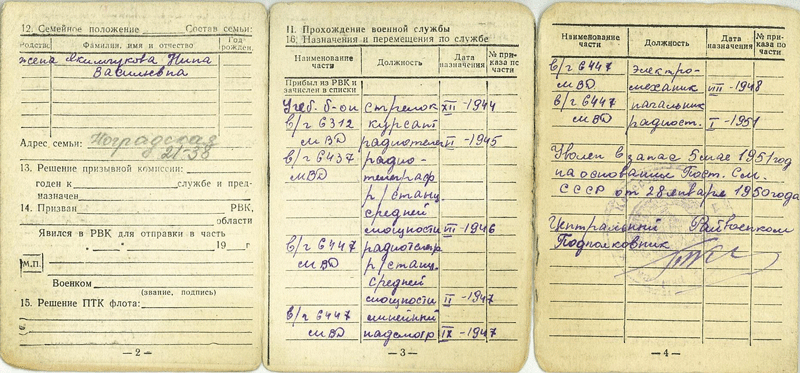 12. Семейное положение Состав семьи:
Родство Фамилия, имя и отчество Год рожден.
жена Якимчукова Нина
Васильевна
Адрес семьи: Ноградская
21-58
13. Решение призывной комиссии:
годен к службе и пред-
назначен
14. Призван РВК,
области
Явился в РВК для отправки в часть
19 г
М.П.
Военком
(звание, подпись)
15. Решение ПТК флота:
— 2 —
II. Прохождение военной службы
16. Назначения и перемещения по службе
Наименование части Должность Дата назначения № при-каза по части
Прибыл из РВК и
зачислен в списки
Учеб. б-он стрелок XII -1944
в/ч 6312 курсант
МВД радиотелег -1945
в/ч 6437 радио-
МВД телеграф
р/станц.
средней
мощности VIII -1946
в/ч 6447 радиотелегр
МВД р/станц.
средней
мощности II -1947
в/ч 6447 линейный
МВД надсмотр IX -1947
— 3 —
Наименование части Должность Дата назначения № при-каза по части
в/ч 6447 электро-
МВД механик VIII -1948
в/ч 6447 начальник
МВД радиост. I -1951
Уволен в запас 5 мая 1951 год
на основании Пост. См.
СССР от 28 января 1950 года
Центральный Райвоенком
Подполковник
— 4 —